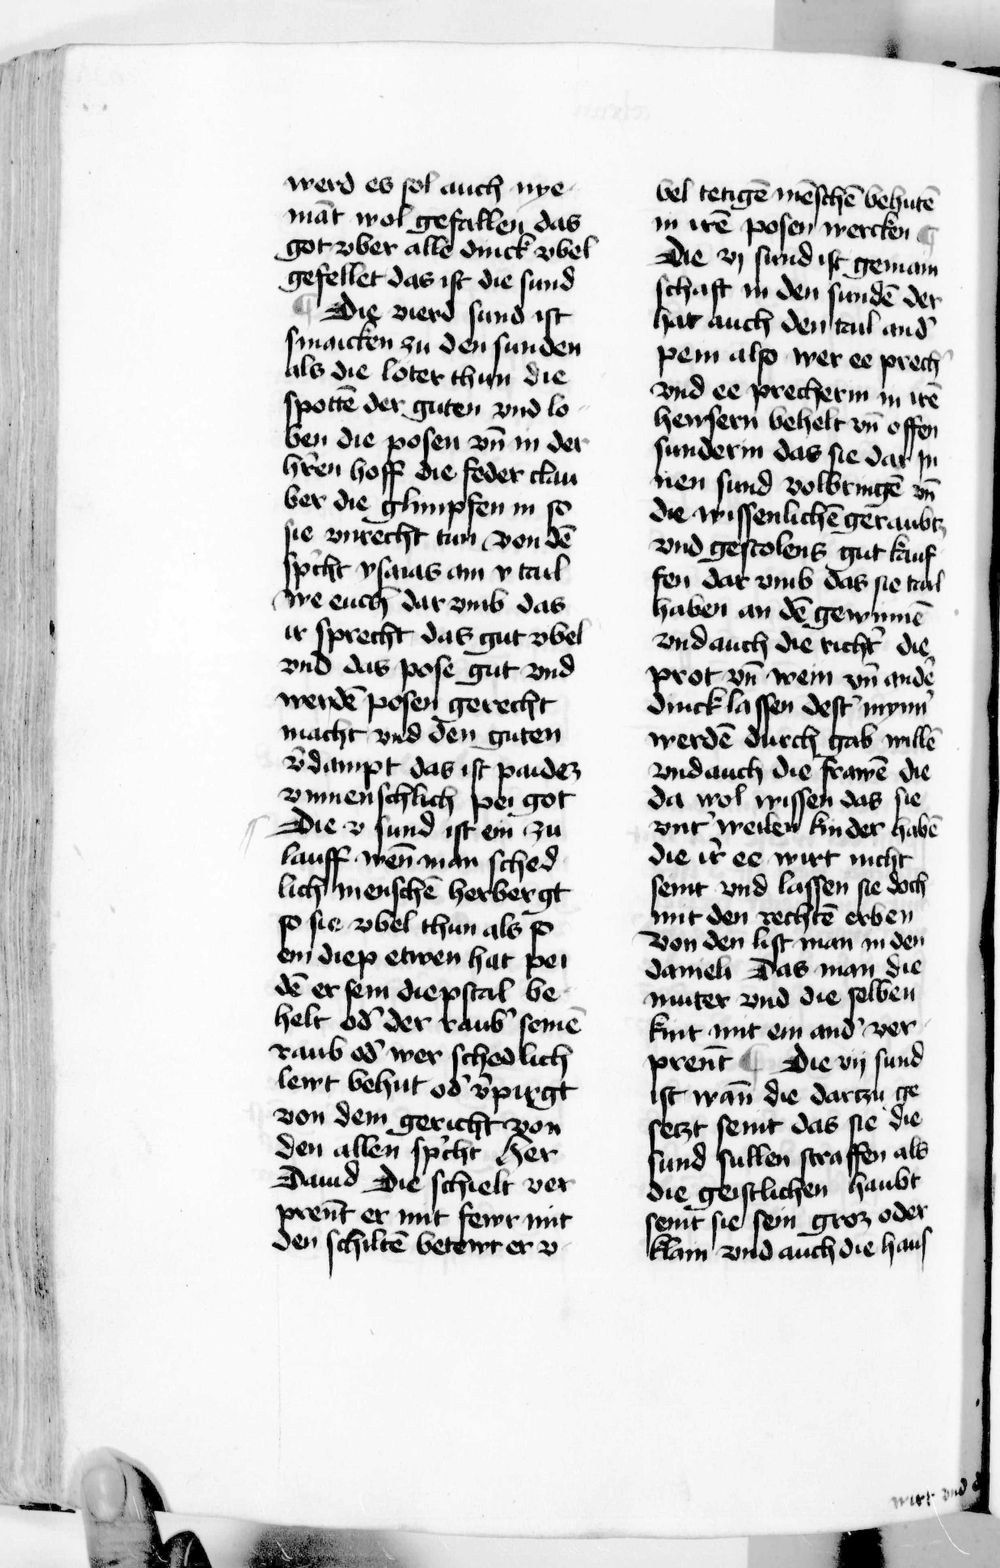 werd es sol auch nye-
māt wol gefallen das
got vber alle dinck vbel
gefellet das ist die sund
¶ Die vierd sund ist
smaicken zu den sunden
als die loter thun die
spottē der guten vnd lo-
ben die posen vn̄ in der
hr̄en hoff die feder clau
ber die glimpfen in so
sie vnrecht tun von dē
sp̄cht ysaias am v tail
We euch dar vmb das
ir sprecht das gut vbel
vnd das pose gut vnd
werdē posen gerecht
macht vnd den guten
v̄dampt das ist paidez
vnmenschlich pei got
Die v sund ist ein zu
lauff wen̄ man sched
lich menschē herbergt
so sie vbel thun als so
ein diep etwen hat pei
dē er sein diepstal be-
helt od' der raub' seinē
raub od' wer schedlich
lewt behut od' v̄pirgt
von dem gericht von
den allen sp̄cht Her
Dauid Die schielt ver
pren̄t er mit fewr mit
den schiltē betewt er v-
bel tetigē mēschē behutē
in irē posen wercken ¶
Die vj sund ist gemain
schaft in den sundē der
hat auch den tail and'
pein also wer ee prech'
vnd ee precherin in irē
hewsern behelt vn̄ offen
sunderin das sie dar in
nen sund volbringē vn̄
die wissenlichē geraubtz
vnd gestolens gut kauf
fen dar vmb das sie tail
haben an dē gewinnē
vnd auch die richt' die
prot vn̄ wein vn̄ andē
dinck lassen dest' mynn'
werdē durch gab willē
vnd auch die frawē die
da wol wissen das sie
vnt' weilen kinder habē
die ir̄ ee wirt nicht
seint vnd lassen sie doch
mit den rechtē erben
Von den list man in den
danieli Das man die
muter vnd die selben
kint mit ein and' ver-
pren̄t ¶ Die vij sund
ist wan̄ die dartzu ge
setzt seint das sie die
sund sullen straffen als
die geistlichen haubt
seint sie sein groz oder
klain vnd auch die haus
wirt vnd